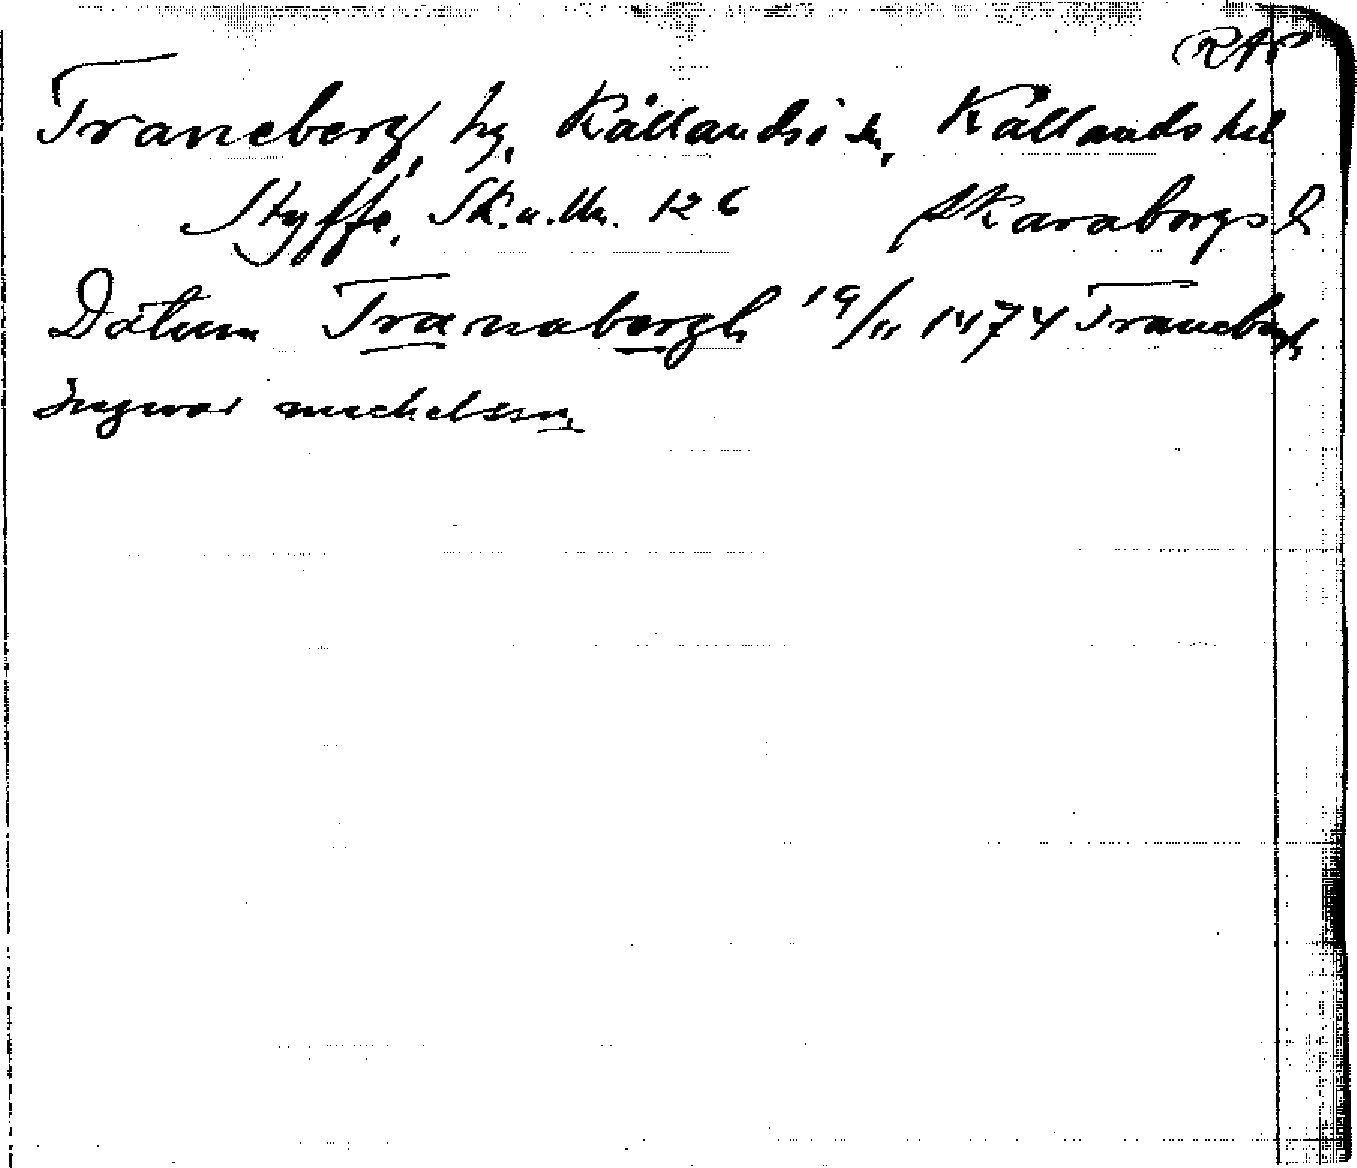 RAP
Traneberg, hg, Kållandsö sn, Kållands hd
Styffe, Sk. u. Un. 126 Skaraborgs l
Datum Tranabergh 19/11 1474 Tranebergh
Ingwar michelsson